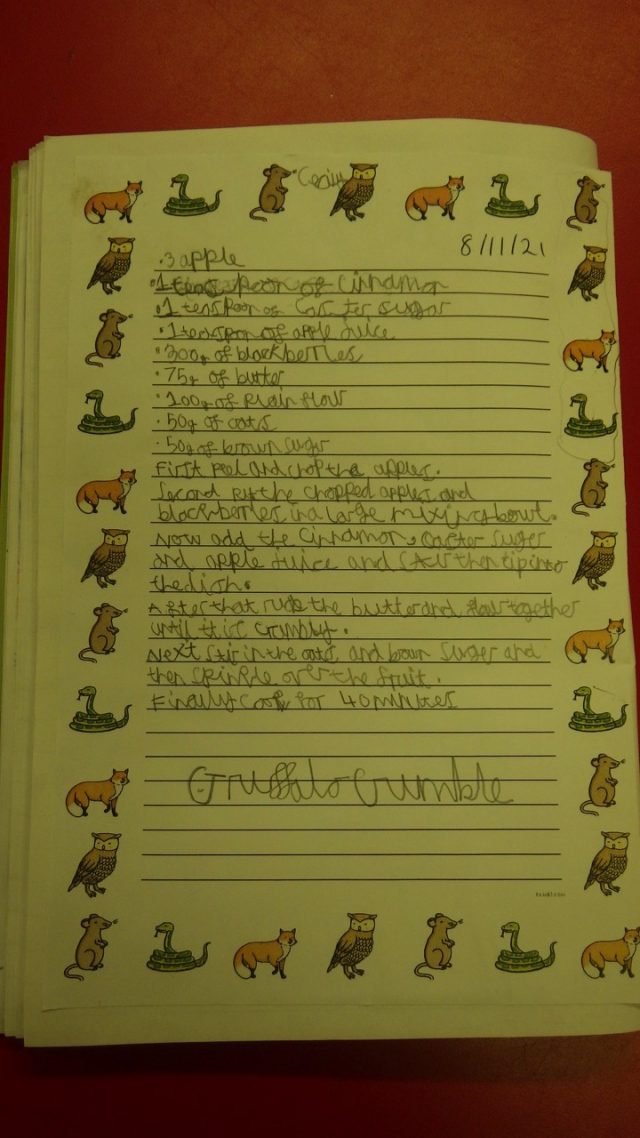 Cecily
8/11/21
·3 apple
·1 teaspoon of Cinnamon
·1 teaspoon of Caster sugar
·1 teaspoon of apple Juice
·300g of blackberries
·75g of butter
·100g of Plain flour
·50g of oats
·50g of brown sugar
First Peel and chop the apples.
Second Put the chopped apples and
blackberries in a large mixing bowl.
Now add the Cinnamon, Caster Suger
and apple Juice and then tip into
the dish.
After that rub the butter and together
until it is crumbly.
Next Stir in the oats and brown Suger and
then Sprinkle over the fruit.
Finally Cook for 40 minutes
Gruffalo Crumble